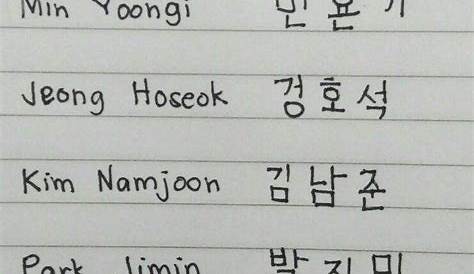 Min Yoongi 민윤기
Jeong Hoseok 경호석
Kim Namjoon 김남준
Park Jimin 박지민